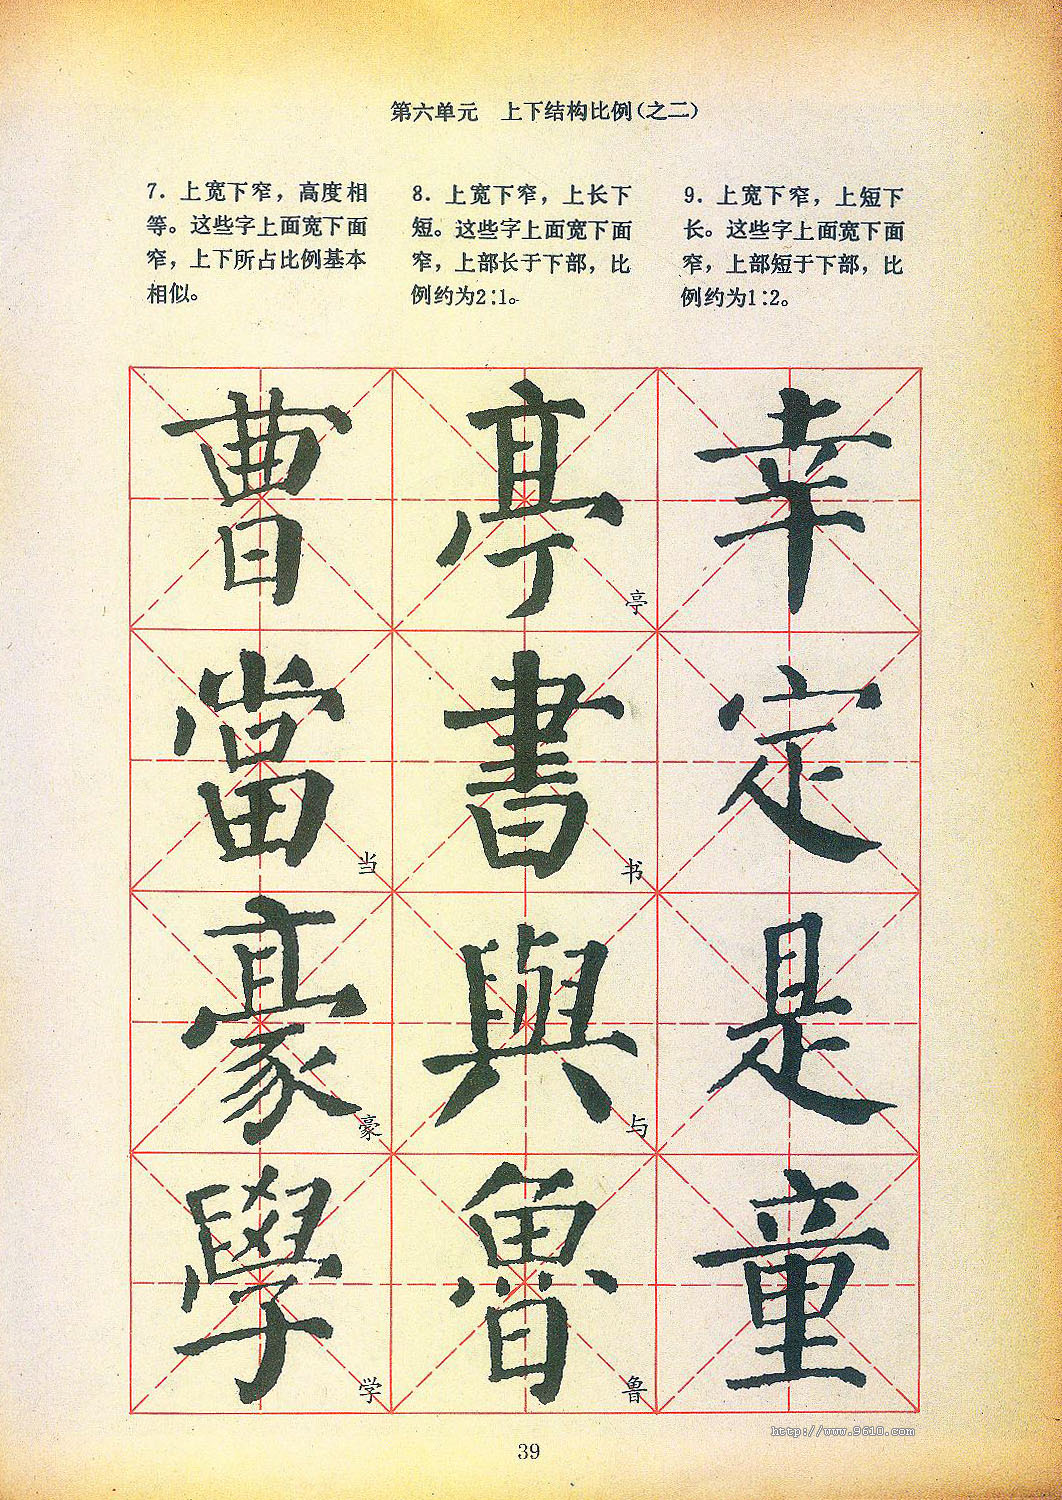 第六单元　上下结构比例(之二)
7. 上宽下窄，高度相
等。这些字上面宽下面
窄，上下所占比例基本
相似。
8. 上宽下窄，上长下
短。这些字上面宽下面
窄，上部长于下部，比
例约为2∶1。
9. 上宽下窄，上短下
长。这些字上面宽下面
窄，上部短于下部，比
例约为1∶2。
曹
亭
亭
幸
當
当
書
书
定
豪
豪
與
与
是
學
学
魯
鲁
童
http://www.9610.com
39